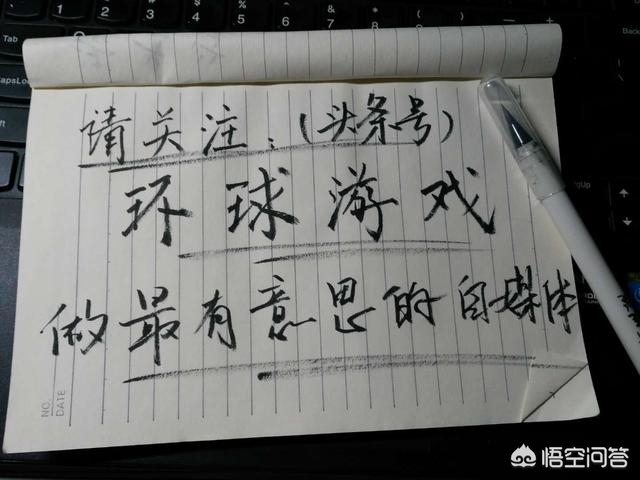 请关注：（头条号）
环球游戏
做最有意思的自媒体
NO.
DATE
悟空问答